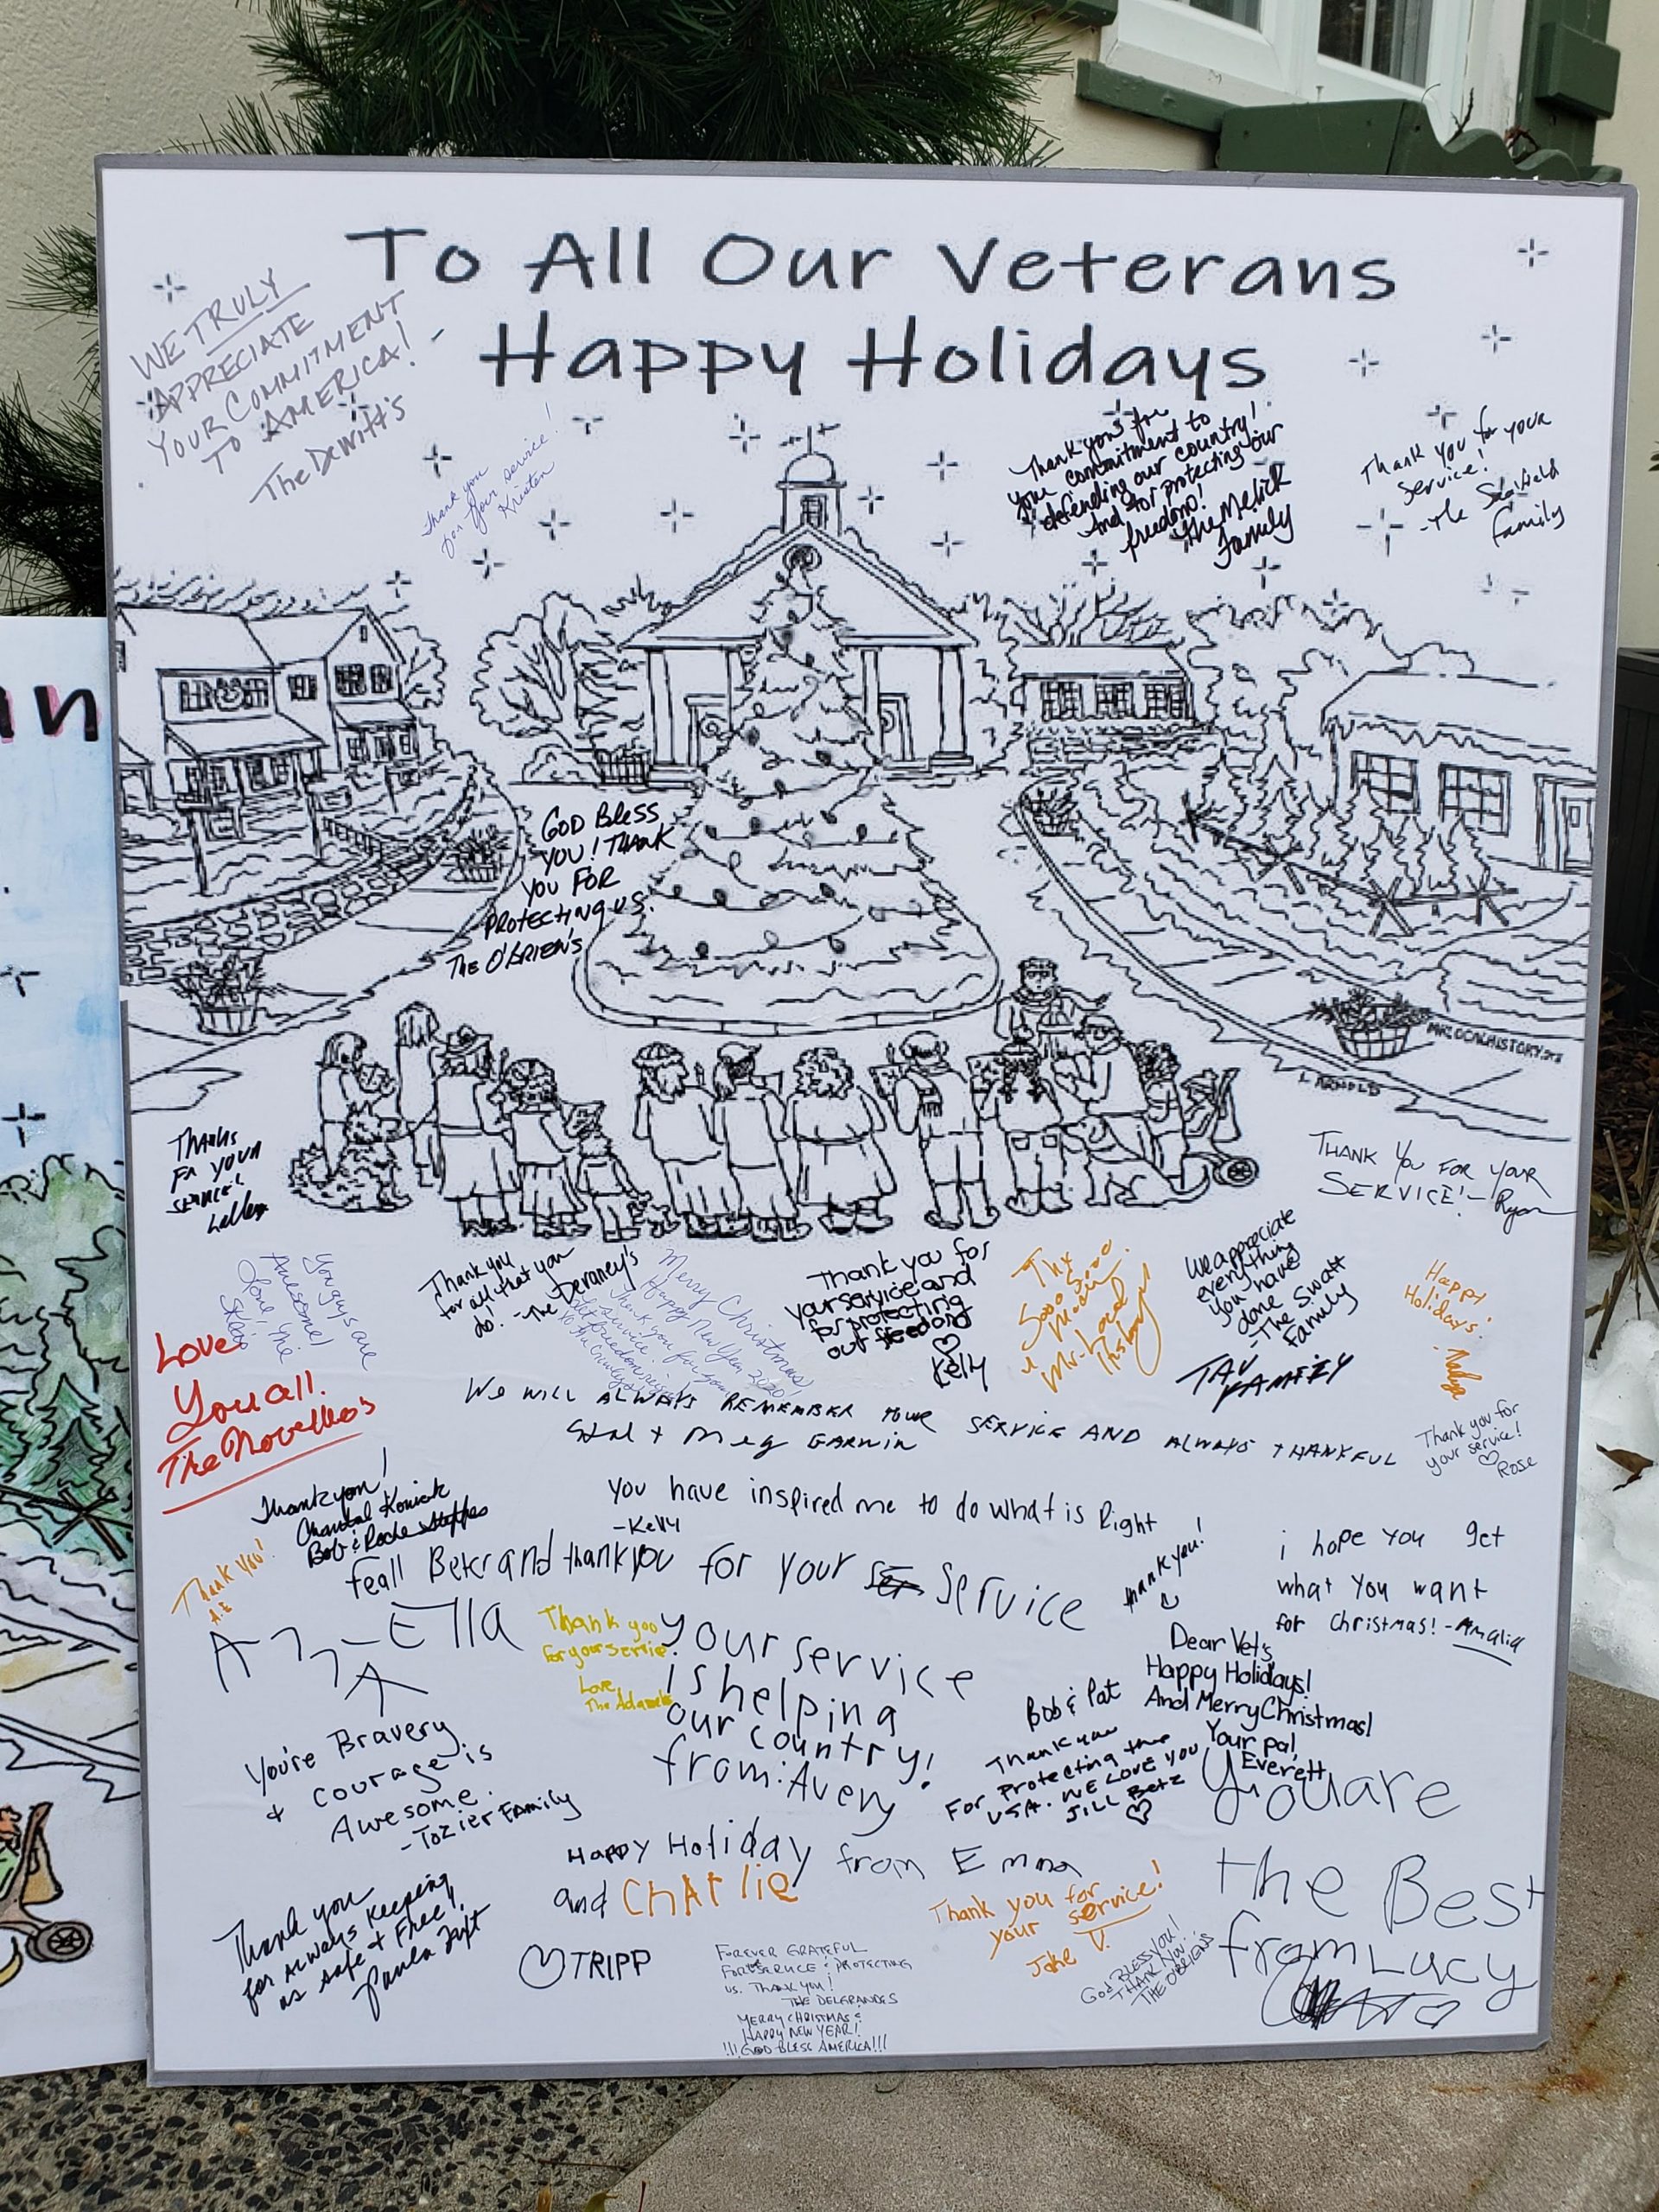 To All Our Veterans
Happy Holidays
WE TRULY
APPRECIATE
YOUR COMMITMENT
TO AMERICA!
The DeWitt's
Thank you
for your service!
Kristen
Thank you for
your commitment to
defending our country!
And for protecting our
freedom!
The Melick
Family
Thank you for your
service!
-The Seafield
Family
an
GOD BLESS
YOU! THANK
YOU FOR
PROTECTING US.
THE O'BRIEN'S
MRLOCALHISTORY.org
L ARNOLD
THANKS
FOR YOUR
SERVICE!
THANK YOU FOR YOUR
SERVICE! - Ryan
You guys are
Awesome!
Love, the
Thank you
for all that you
do! -The Deraney's
Merry Christmas!
Happy New Year 2020!
Thank you for your
service.
Let freedom
Thank you for
your service and
for protecting
our freedom
♡
Kelly
Thx
Sooo Sooo
Much
Mr. Local
History
We appreciate
everything
you have
done
- The Swatt
Family
FAMILY
Happy
Holidays!
Love
You all.
The Novello's
WE WILL ALWAYS REMEMBER YOUR SERVICE AND ALWAYS THANKFUL
+ Meg GARWIN
Thank you for
your service!
♡ Rose
Thank you!
Chantal
Bob &
You have inspired me to do what is Right
-Kelly
Thank you!
A.E
feall Beter and thank you for your Service
thank you!
i hope you get
what you want
for Christmas! - Amalia
Ella
Thank you
for your servie.
Love,
The Adamek
your service
is helping
our country!
from: Avery
Dear Vets,
Happy Holidays!
And Merry Christmas!
Your pal,
Everett
Bob & Pat
Thank you
For Protecting the
USA. WE LOVE YOU
JILL Betz
♡
You're Bravery
& courage is
Awesome.
-Tozier Family
You are
the Best
from Lucy
Happy Holiday from Emma
and CHArlie
Thank you
for always keeping
us safe + Free!
Paula Tift
♡ TRIPP
FOREVER GRATEFUL
FOR SERVICE & PROTECTING
US. THANK YOU!
THE DELGRANDES
MERRY CHRISTMAS &
HAPPY NEW YEAR!
!!! GOD BLESS AMERICA!!!
Thank you for
your service!
Jake V.
GOD BLESS YOU!
THANK YOU!
THE O'BRIENS